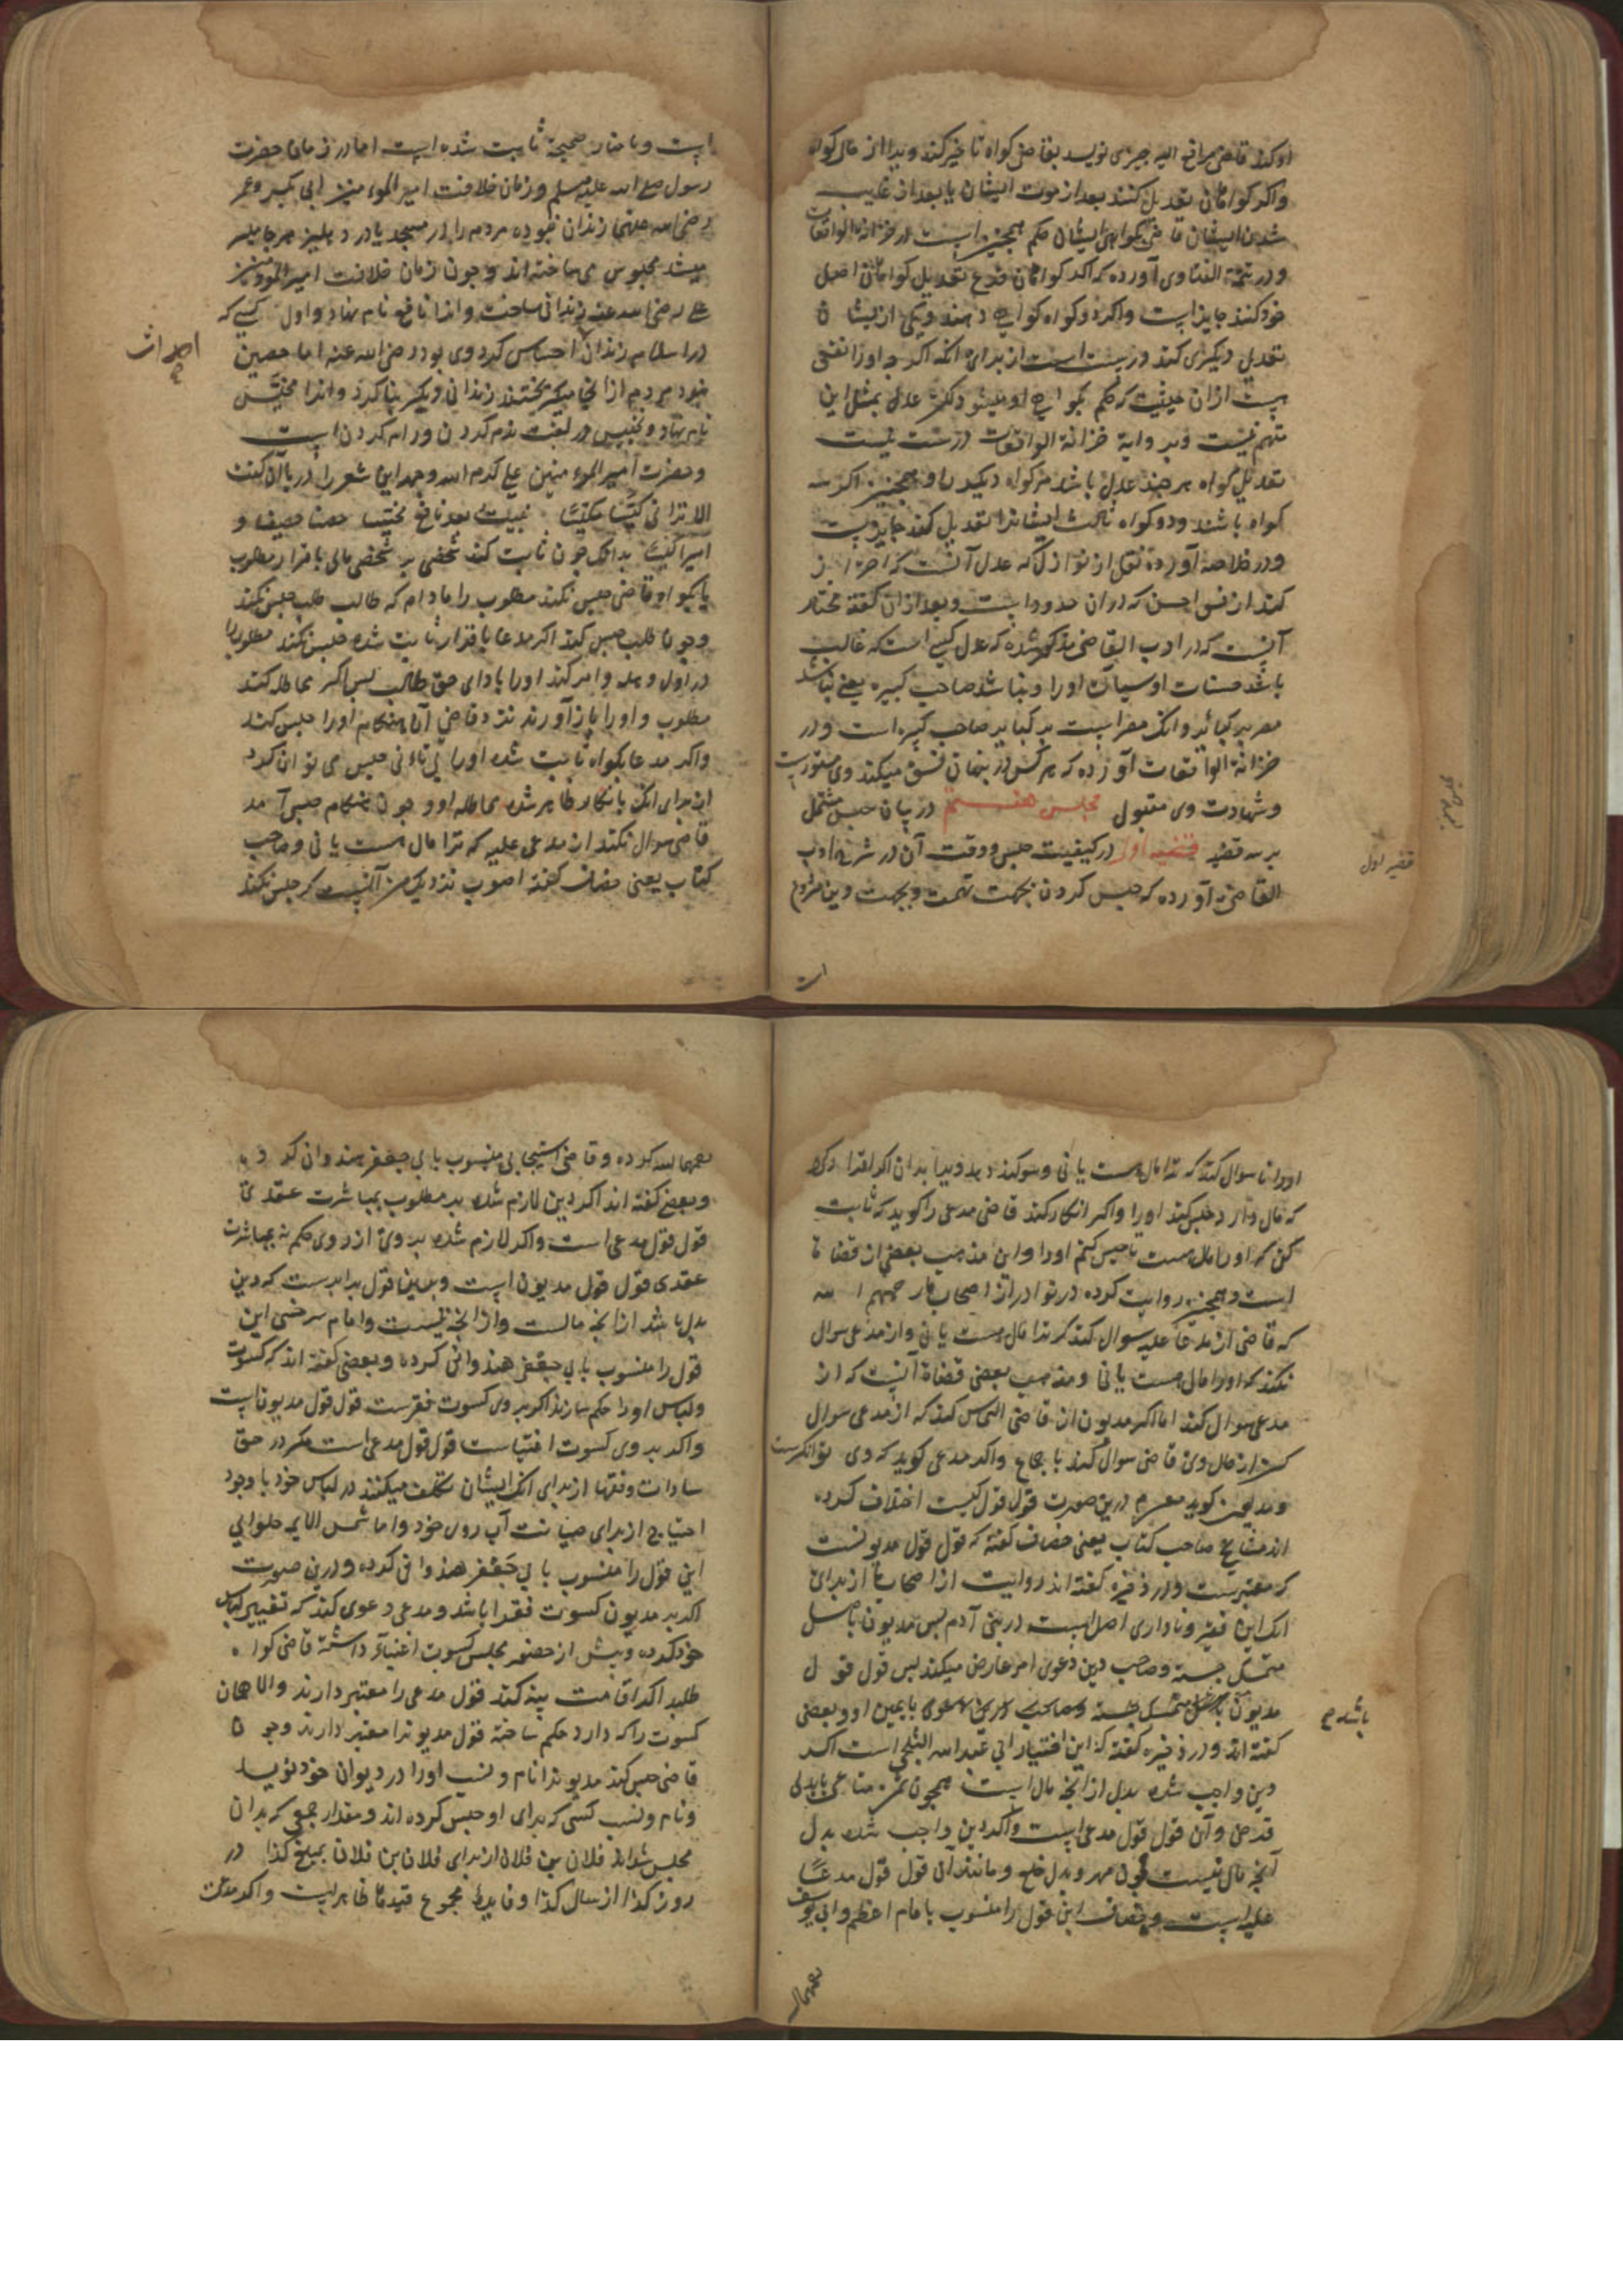 او کند قاضی مرافع الیه چیزی نویسد بقاضی کواه تا خبر کند ویرا از حال کواه
واکر کواهان تعدیل کنند بعد از موت ایشان یا بعد از غایب
شدن ایشان قاضی بکواهی ایشان حکم در خزانة الواقعات
ودر تتمة الفتاوی آورده که اکر کواهان فرع تعدیل کواهان اصل
خود کنند جایز است واکر دو کواه کواهی دهند ویکی از ایشان
تعدیل دیکری کند درست است از برای انکه اکرچه اورا نفعی
هست ازان حیثیت که حکم بکواهی او میشود لکن عدل بمثل این
متهم نیست وبروایة خزانة الواقعات درست نیست
تعدیل کواه هر چند عدل باشد مر کواه دیکر را وهمچنین اکر سه
کواه باشند ودو کواه ثالث ایشانرا تعدیل کند جایز نیست
ودر خلاصه آورده نقل از نوازل که عدل آنست که احتراز
کند از فسق که دران حدود است وبعد ازان کفته مختار
آنست که در ادب القاضی مذکور شده که عدل کسی است که غالب
باشد حسنات او سیآت اورا ونباشد صاحب کبیره یعنی نباشد
مصر بر کبائر وانکه مصر است بر کبایر صاحب کبیره است ودر
خزانة الواقعات آورده که هر کس در پنهان فسق میکند وی مستورست
وشهادت وی مقبول مجلس هفتم در بیان حبس مشتمل
بر سه قضیه قضیه اول در کیفیت حبس ووقت آن در شرح ادب
القاضی آورده که حبس کردن بجهت تهمت وبجهت دین مشروع
قضیه اول
است وباخبار صحیحة ثابت شده است اما در زمان حضرت
رسول صلی الله علیه وسلم وزمان خلافت امیر المومنین ابی بکر وعمر
رضی الله عنهما زندان نبوده مردم را در مسجد یا در دهلیز هر جا میسر
میشد محبوس می ساخته اند وچون زمان خلافت امیر المومنین
علی رضی الله عنه زندانی ساخت وانرا نافع نام نهاد واول کسی که
در اسلام زندان احداث کرد وی بود رضی الله عنه اما حصین
نبود مردم از انجا میکریختند زندانی دیکر بنا کرد وانرا مخیس
نام نهاد وتخییس در لغت نرم کردن ورام کردن است
وحضرت امیر المومنین علی کرم الله وجهه این شعر را در باب آن کفت
الا ترانی کیسا مکیسا بنیت بعد نافع مخیسا حصنا حصینا و
امیرا کیسا بدانکه چون ثابت کند شخصی بر شخصی مالی باقرار مطلوب
یا بکواه قاضی حبس نکند مطلوب را مادام که طالب طلب حبس نکند
وچون طلب حبس کند اکر مدعا باقرار ثابت شده حبس نکند مطلوب را
در اول وهله وامر کند اورا بادای حق طالب پس اکر مماطله کند
مطلوب واورا باز آورند نزد قاضی آن هنکام اورا حبس کند
واکر مدعا بکواه ثابت شده اورا بی تانی حبس می توان کرد
از برای انکه بانکار ظاهر شده مماطله او وچون هنکام حبس آمد
قاضی سوال نکند از مدعی علیه که ترا مال هست یا نی وصاحب
کتاب یعنی خصاف کفته اصوب نزدیک من آنست که حبس نکند
احداث
اورا تا سوال کند که ترا مال هست یا نی وسوکند دهد ویرا بدان اکر اقرار کرد
که مال دارد حبس کند اورا واکر انکار کند قاضی مدعی را کوید که ثابت
کن که اورا مال هست تا حبس کنم اورا واین مذهب بعضی از قضاة
است وهمچنین روایت کرده در نوادر از اصحاب ما رحمهم الله
که قاضی از مدعا علیه سوال کند که ترا مال هست یا نی واز مدعی سوال
نکند که اورا مال هست یا نی ومذهب بعضی قضاة آنست که از
مدعی سوال کند اما اکر مدیون از قاضی التماس کند که از مدعی سوال
کن از حال وی قاضی سوال کند باجماع واکر مدعی کوید که وی توانکرست
ومدیون کوید معسرم درین صورت قول قول کیست اختلاف کرده
اند مشایخ صاحب کتاب یعنی خصاف کفته که قول قول مدیونست
که معسرست ودر ذخیره کفته اند روایت از اصحاب ما از برای
انکه این فقیر وناداری اصل است در بنی آدم پس مدیون باصل
متمسک جسته وصاحب دین دعوی امر عارض میکند پس قول قول
مدیون باشد با یمین او وبعضی
کفته اند ودر ذخیره کفته که این اختیار ابی عبد الله البلخی است اکر
دین واجب شده بدل از انچه مال است همچون ثمن متاعی یا بدل
قرض وآن قول قول مدعی است واکر دین واجب شده بدل
آنچه مال نیست چون مهر وبدل خلع ومانند آن قول قول مدعا
علیه است وخصاف این قول را منسوب بامام اعظم وابی یوسف
باشد
رحمهما الله کرده وقاضی اسبیجابی منسوب بابی جعفر هندوان کرده
وبعضی کفته اند اکر دین لازم شده بر مطلوب بمباشرت عقدی
قول قول مدعی است واکر لازم شده بر وی از روی حکم نه بمباشرت
عقدی قول قول مدیون است وبدین قول برابرست که دین
بدل باشد از انچه مالست واز انچه نیست وامام سرخسی این
قول را منسوب بابی جعفر هندوانی کرده وبعضی کفته اند که کسوت
ولباس اورا حکم سازند اکر بر وی کسوت فقرست قول قول مدیونست
واکر بر وی کسوت اغنیاست قول قول مدعی است مکر در حق
سادات وفقها از برای انکه ایشان تکلف میکنند در لباس خود با وجود
احتیاج از برای صیانت آب روی خود واما شمس الایمه حلوایی
این قول را منسوب بابی جعفر هندوانی کرده ودرین صورت
اکر بر مدیون کسوت فقرا باشد ومدعی دعوی کند که تغییر لباس
خود کرده وپیش از حضور مجلس کسوت اغنیا داشته قاضی کواه
طلبد اکر اقامت بینه کند قول مدعی را معتبر دارند والا همان
کسوت را که دارد حکم ساخته قول مدیونرا معتبر دارند وچون
قاضی حبس کند مدیونرا نام ونسب اورا در دیوان خود نویسد
ونام ونسب کسی که برای او حبس کرده اند ومقدار جمعی که بدان
محبس شد اند فلان بن فلان از برای فلان بن فلان بمبلغ کذا در
روز کذا از سال کذا وفایده مجموع قیدها ظاهر است واکر مدت